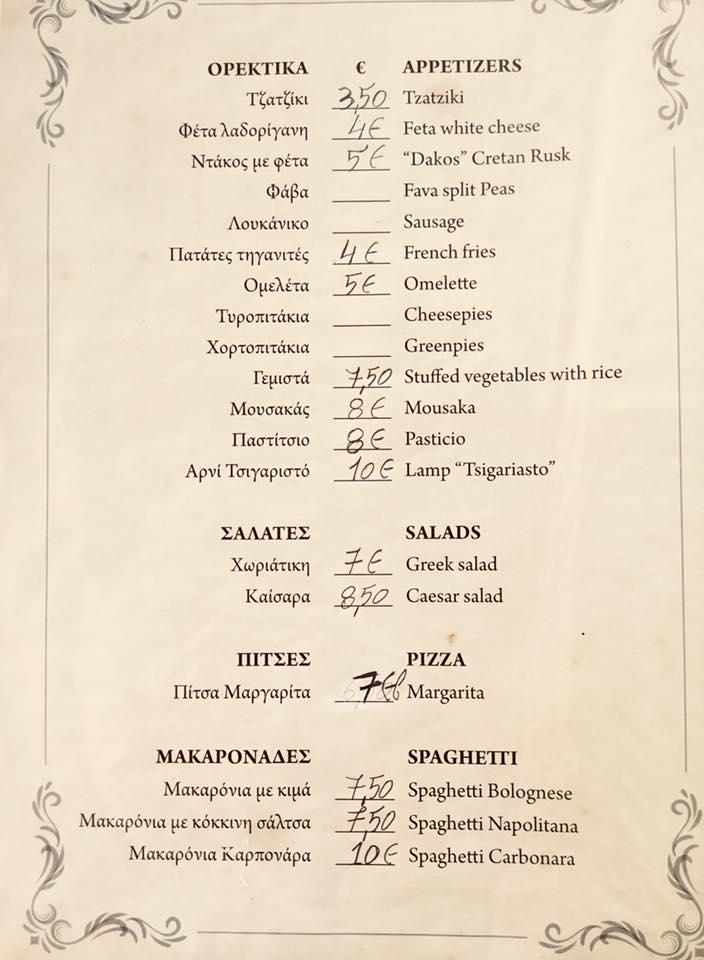 ΟΡΕΚΤΙΚΑ € APPETIZERS
Τζατζίκι 3,50 Tzatziki
Φέτα λαδορίγανη 4€ Feta white cheese
Ντάκος με φέτα 5€ “Dakos” Cretan Rusk
Φάβα Fava split Peas
Λουκάνικο Sausage
Πατάτες τηγανιτές 4€ French fries
Ομελέτα 5€ Omelette
Τυροπιτάκια Cheesepies
Χορτοπιτάκια Greenpies
Γεμιστά 7,50 Stuffed vegetables with rice
Μουσακάς 8€ Mousaka
Παστίτσιο 8€ Pasticio
Αρνί Τσιγαριστό 10€ Lamp “Tsigariasto”
ΣΑΛΑΤΕΣ SALADS
Χωριάτικη 7€ Greek salad
Καίσαρα 8,50 Caesar salad
ΠΙΤΣΕΣ PIZZA
Πίτσα Μαργαρίτα 7€ Margarita
ΜΑΚΑΡΟΝΑΔΕΣ SPAGHETTI
Μακαρόνια με κιμά 7,50 Spaghetti Bolognese
Μακαρόνια με κόκκινη σάλτσα 7,50 Spaghetti Napolitana
Μακαρόνια Καρπονάρα 10€ Spaghetti Carbonara